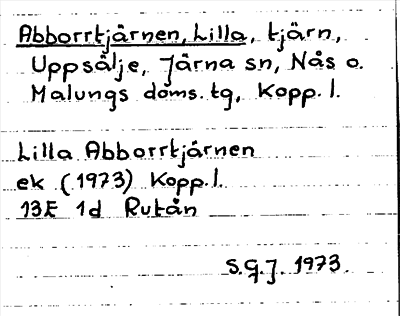 Abborrtjärnen, Lilla, tjärn,
Uppsälje, Järna sn, Nås o.
Malungs doms. tg, Kopp. l.
Lilla Abborrtjärnen
ek (1973) Kopp. l.
13E 1d Rutån
S.G.J. 1973.